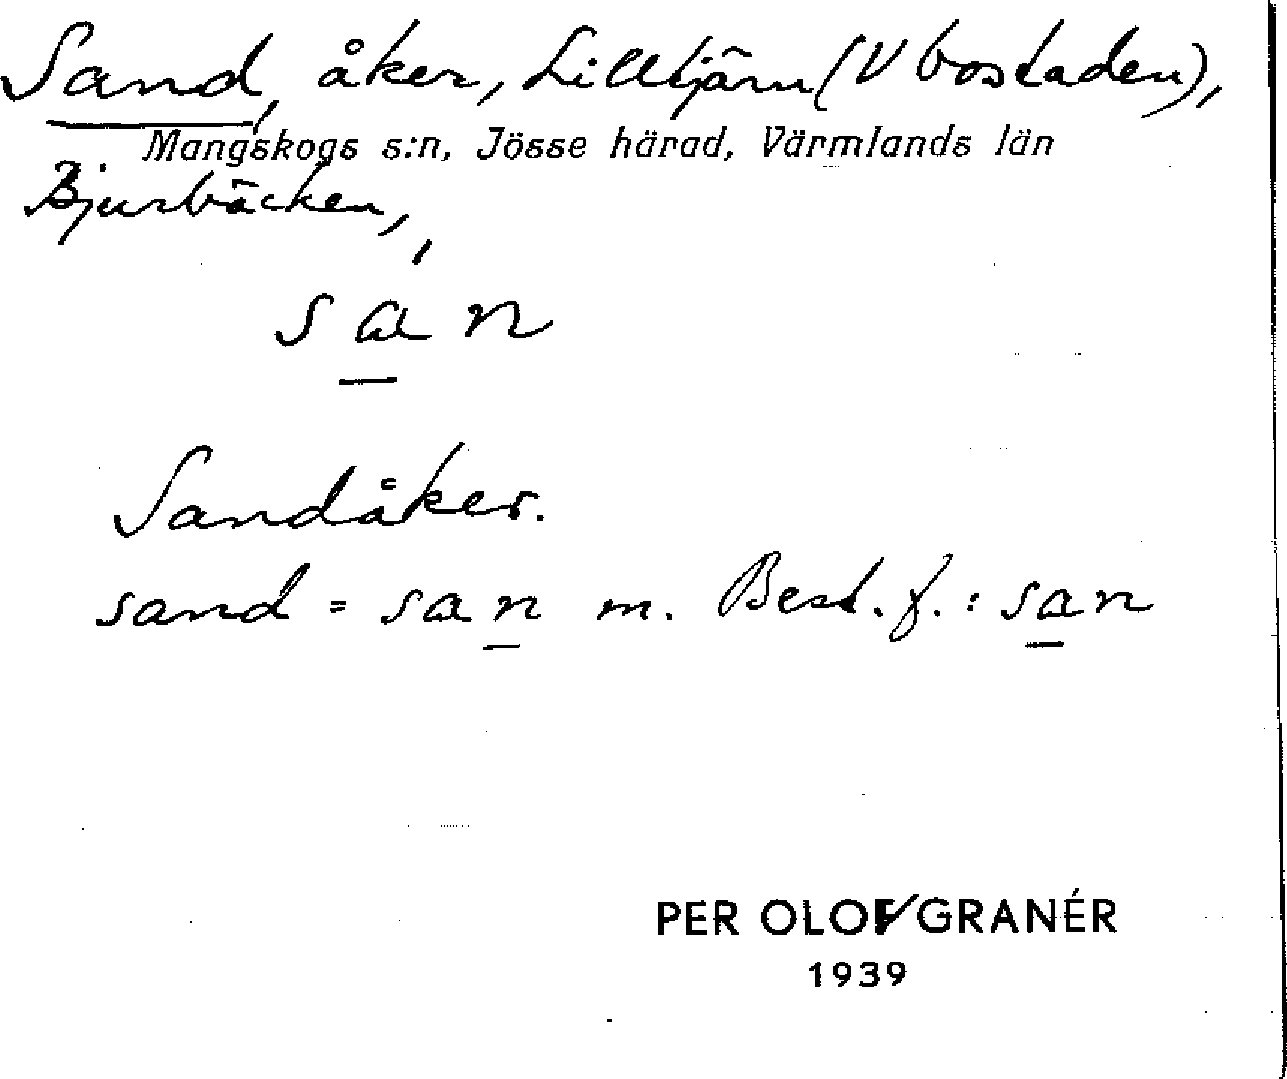 Sand, åker, Lilltjärn (V bostaden),
Mangskogs s:n, Jösse härad, Värmlands län
Bjurbäcken,
san
Sandåker.
sand = san m. Best. f. : san
PER OLOF GRANÉR
1939